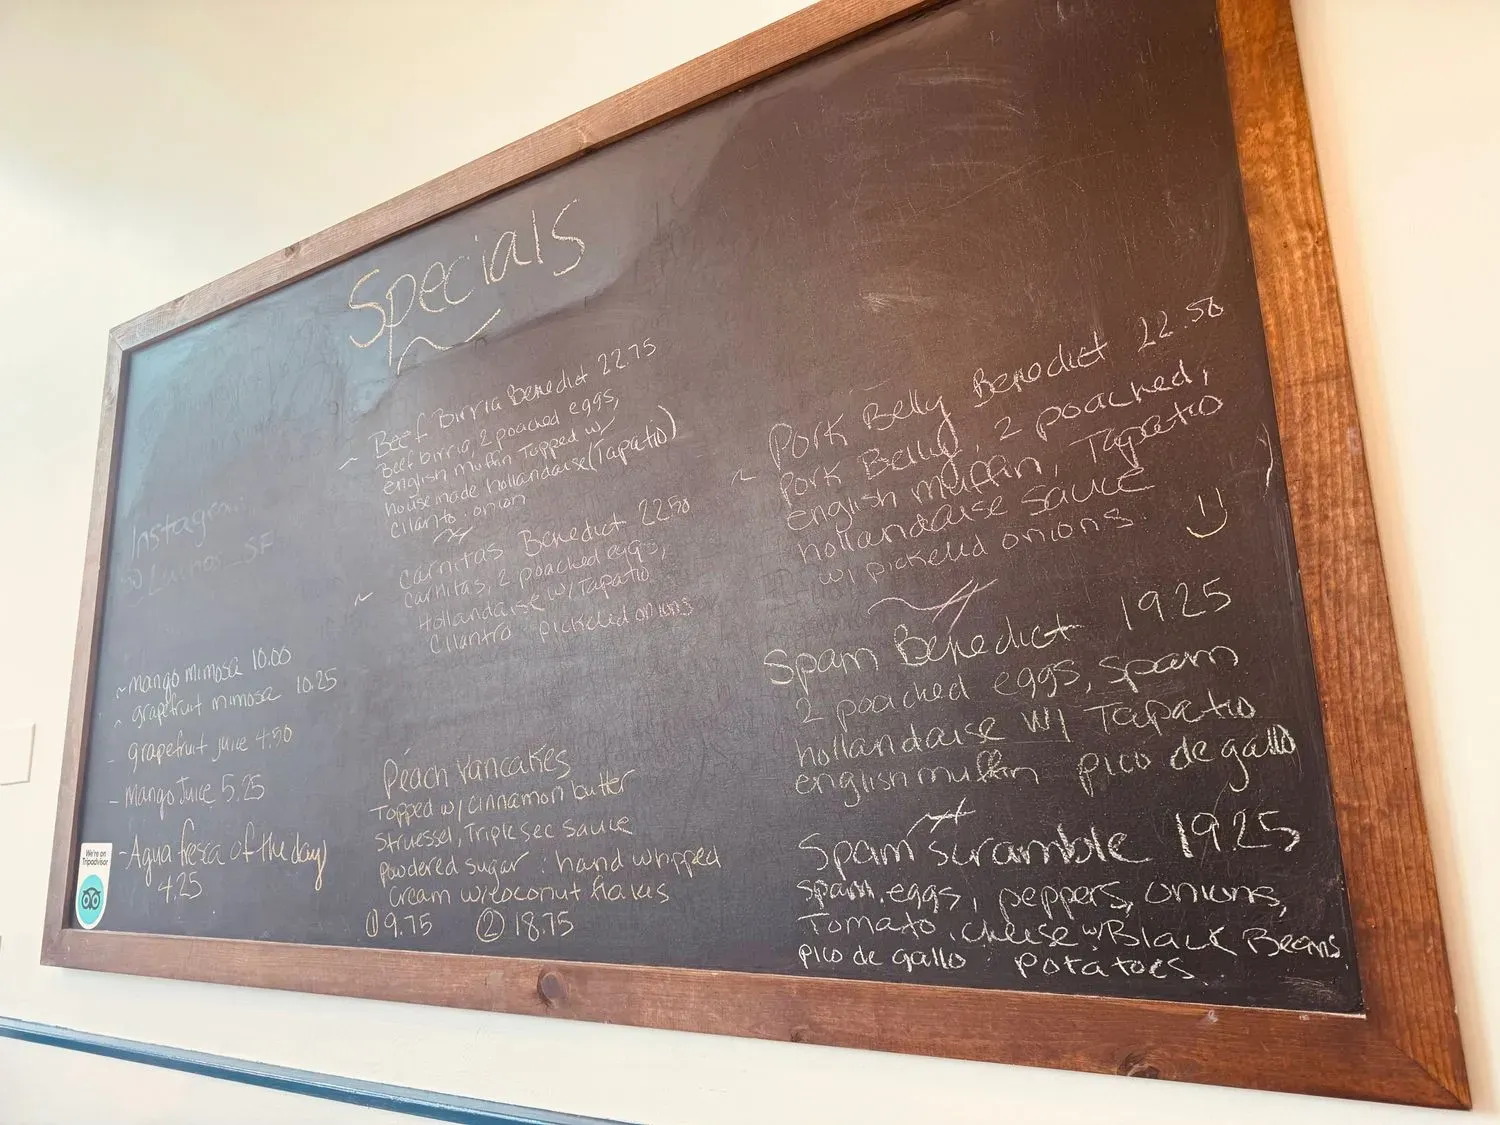 Specials
Beef Birria Benedict 22.75
Beef birria, 2 poached eggs,
english muffin Topped w/
house made hollandaise (Tapatio)
cilantro . onion
Carnitas Benedict 22.50
Carnitas, 2 poached eggs,
Hollandaise w/ Tapatio
Cilantro pickeled onions
Peach Pancakes
Topped w/ cinnamon butter
Struessel, Triple sec sauce
powdered sugar . hand whipped
Cream w/coconut flakes
① 9.75 ② 18.75
Pork Belly Benedict 22.50
Pork Belly, 2 poached,
english muffin, Tapatio
hollandaise sauce
w/ pickeled onions
Spam Benedict 19.25
2 poached eggs, spam
hollandaise w/ Tapatio
english muffin pico de gallo
Spam scramble 19.25
spam, eggs, peppers, onions,
Tomato, cheese w/Black Beans
pico de gallo . potatoes
Instagram:
SF
~ mango mimosa 10.00
~ grapefruit mimosa 10.25
- grapefruit juice 4.50
- Mango Juice 5.25
- Agua fresca of the day)
4.25
We're on
Tripadvisor